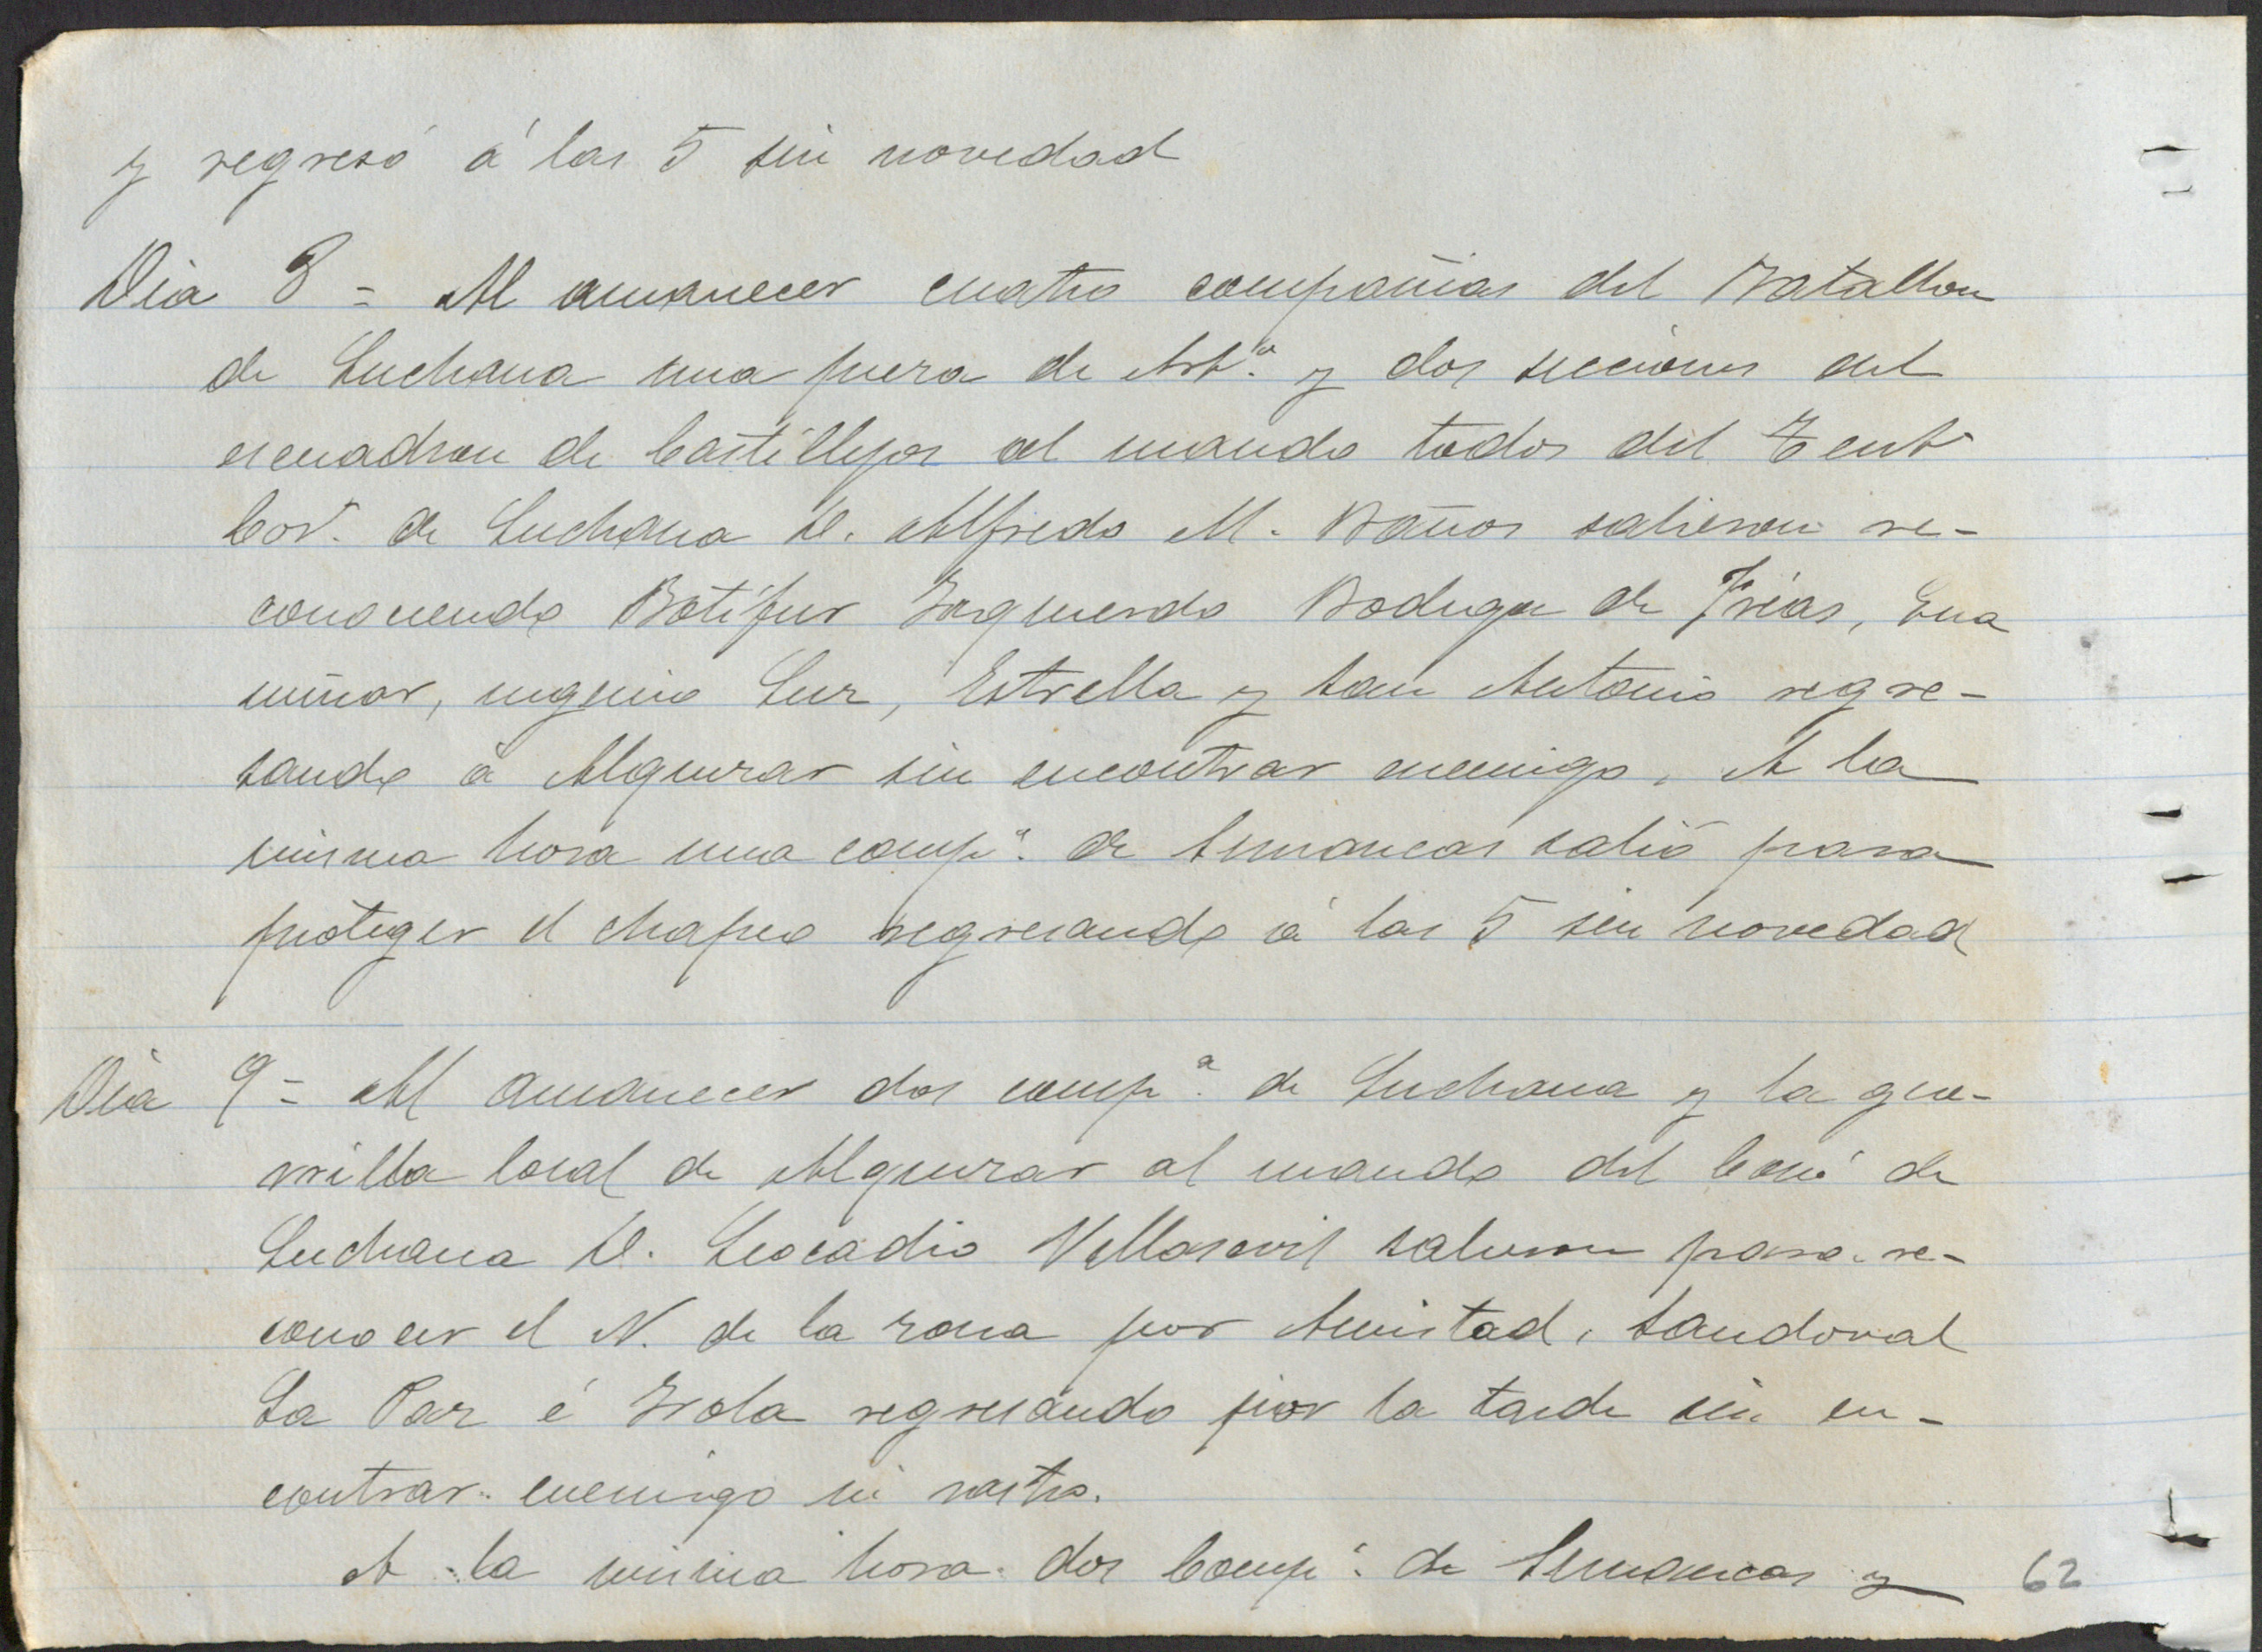 y regresó á las 5 sin novedad
Dia 8 = Al amanecer cuatro compañias del Batallon
de Luchana una pieza de Art.ª y dos secciones del
escuadron de Castillejos al mando todos del Tent
Cor.l de Luchana D. Alfredo M. Baños salieron re-
conociendo Botifur Izquierdo Bodega de Frias, Gua
nimar, ingenio Luz, Estrella y San Antonio regre-
sando á Alquizar sin encontrar enemigo. A la
misma hora una comp.ª de Simancas salió para
proteger el chapeo regresando á las 5 sin novedad
Dia 9 = Al amanecer dos comp.ª de Luchana y la gue-
rrilla local de Alquizar al mando del Com.te de
Luchana D. Leocadio salieron para re-
conocer el N. de la zona por Amistad, Sandoval
La Paz é Isola regresando por la tarde sin en-
contrar enemigo ni rastro.
A la misma hora dos Comp.ª de Simancas y
62